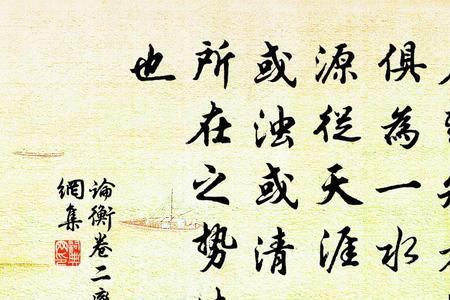 俱為一水
源從天涯
或浊或清
所在之势
也
論衡卷二
網集